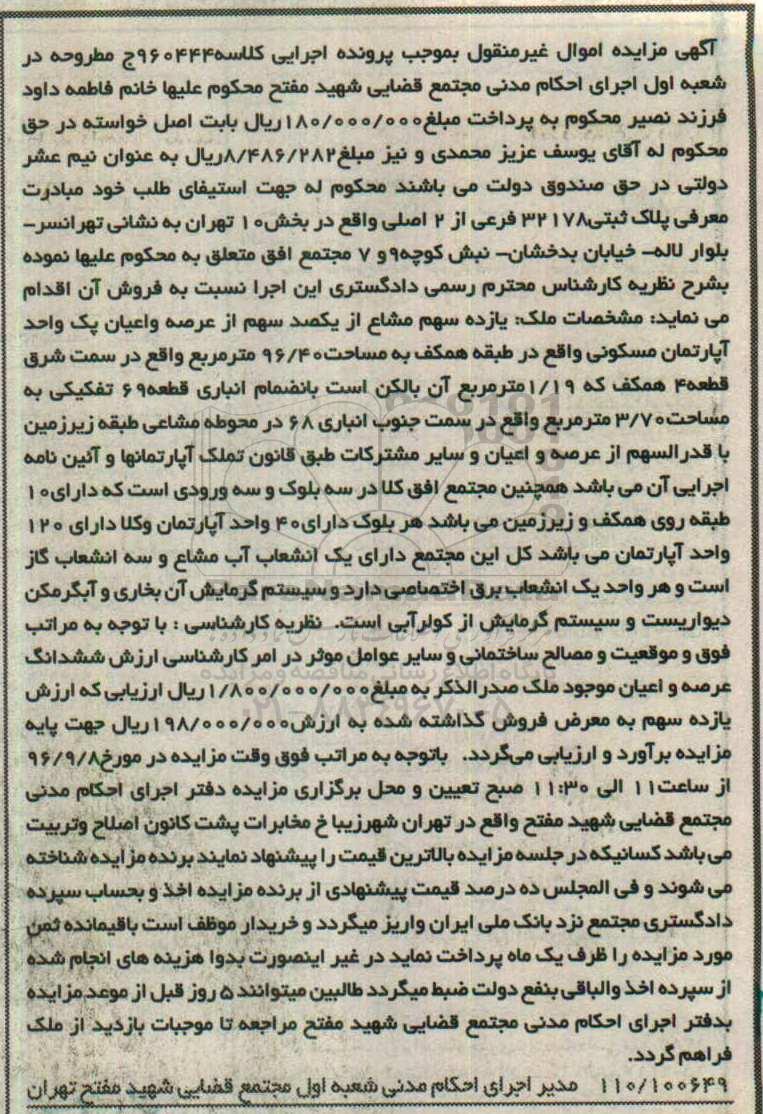 آگهی مزایده اموال غیرمنقول بموجب پرونده اجرایی کلاسه۹۶۰۴۴۴ج مطروحه در
شعبه اول اجرای احکام مدنی مجتمع قضایی شهید مفتح محکوم علیها خانم فاطمه داود
فرزند نصیر محکوم به پرداخت مبلغ۱۸۰/۰۰۰/۰۰۰ریال بابت اصل خواسته در حق
محکوم له آقای یوسف عزیز محمدی و نیز مبلغ۸/۴۸۶/۲۸۲ریال به عنوان نیم عشر
دولتی در حق صندوق دولت می باشند محکوم له جهت استیفای طلب خود مبادرت
معرفی پلاک ثبتی۳۲۱۷۸ فرعی از ۲ اصلی واقع در بخش۱۰ تهران به نشانی تهرانسر–
بلوار لاله– خیابان بدخشان– نبش کوچه۹و ۷ مجتمع افق متعلق به محکوم علیها نموده
بشرح نظریه کارشناس محترم رسمی دادگستری این اجرا نسبت به فروش آن اقدام
می نماید: مشخصات ملک: یازده سهم مشاع از یکصد سهم از عرصه واعیان یک واحد
آپارتمان مسکونی واقع در طبقه همکف به مساحت۹۶/۴۰ مترمربع واقع در سمت شرق
قطعه۴ همکف که ۱/۱۹مترمربع آن بالکن است بانضمام انباری قطعه۶۹ تفکیکی به
مساحت۳/۷۰ مترمربع واقع در سمت جنوب انباری ۶۸ در محوطه مشاعی طبقه زیرزمین
با قدرالسهم از عرصه و اعیان و سایر مشترکات طبق قانون تملک آپارتمانها و آئین نامه
اجرایی آن می باشد همچنین مجتمع افق کلا در سه بلوک و سه ورودی است که دارای۱۰
طبقه روی همکف و زیرزمین می باشد هر بلوک دارای۴۰ واحد آپارتمان وکلا دارای ۱۲۰
واحد آپارتمان می باشد کل این مجتمع دارای یک انشعاب آب مشاع و سه انشعاب گاز
است و هر واحد یک انشعاب برق اختصاصی دارد و سیستم گرمایش آن بخاری و آبگرمکن
دیواریست و سیستم گرمایش از کولرآبی است. نظریه کارشناسی : با توجه به مراتب
فوق و موقعیت و مصالح ساختمانی و سایر عوامل موثر در امر کارشناسی ارزش ششدانگ
عرصه و اعیان موجود ملک صدرالذکر به مبلغ۱/۸۰۰/۰۰۰/۰۰۰ریال ارزیابی که ارزش
یازده سهم به معرض فروش گذاشته شده به ارزش۱۹۸/۰۰۰/۰۰۰ریال جهت پایه
مزایده برآورد و ارزیابی می‌گردد. باتوجه به مراتب فوق وقت مزایده در مورخ۹۶/۹/۸
از ساعت۱۱ الی ۱۱:۳۰ صبح تعیین و محل برگزاری مزایده دفتر اجرای احکام مدنی
مجتمع قضایی شهید مفتح واقع در تهران شهرزیبا خ مخابرات پشت کانون اصلاح وتربیت
می باشد کسانیکه در جلسه مزایده بالاترین قیمت را پیشنهاد نمایند برنده مزایده شناخته
می شوند و فی المجلس ده درصد قیمت پیشنهادی از برنده مزایده اخذ و بحساب سپرده
دادگستری مجتمع نزد بانک ملی ایران واریز میگردد و خریدار موظف است باقیمانده ثمن
مورد مزایده را ظرف یک ماه پرداخت نماید در غیر اینصورت بدوا هزینه های انجام شده
از سپرده اخذ والباقی بنفع دولت ضبط میگردد طالبین میتوانند ۵ روز قبل از موعد مزایده
بدفتر اجرای احکام مدنی مجتمع قضایی شهید مفتح مراجعه تا موجبات بازدید از ملک
فراهم گردد.
۱۱۰/۱۰۰۶۴۹ مدیر اجرای احکام مدنی شعبه اول مجتمع قضایی شهید مفتح تهران